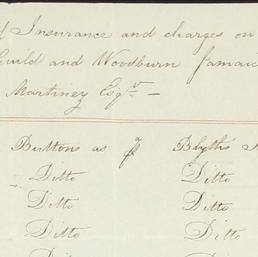 of Insurance and charges on
Guild and Woodburn Jamaic
Martinez Esqr. —
Buttons as pr Blyth's
Ditto Ditto
Ditto Ditto
Ditto Ditto
Ditto